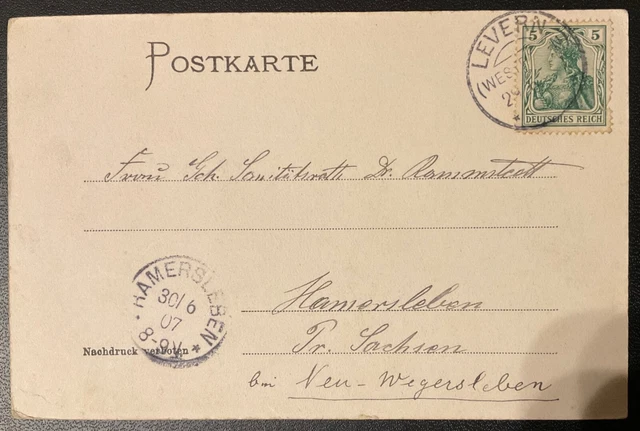 POSTKARTE
LEVERN
(WEST
5 5
DEUTSCHES REICH
Frau Geh. Sanitätsrath Dr. Rammstedt
HAMERSLEBEN
30/6
07
8-9V.
Nachdruck verboten
Hamersleben
Pr. Sachsen
bei Neu-Wegersleben